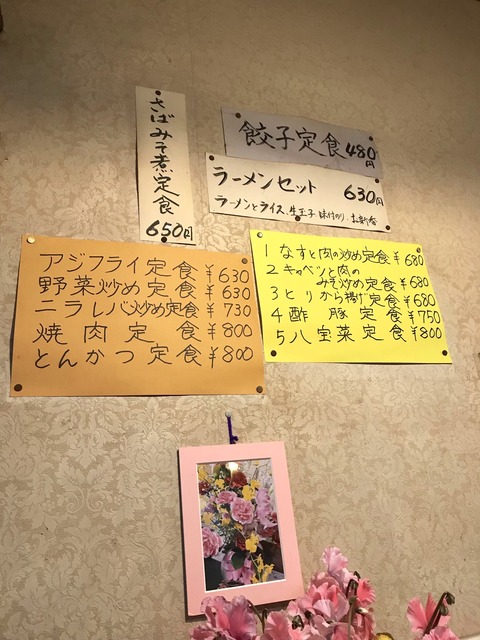 さばみそ煮定食
650円
餃子定食 480円
ラーメンセット 630円
ラーメンとライス、生玉子 味付のり、お新香
アジフライ定食 ¥630
野菜炒め定食 ¥630
ニラレバ炒め定食 ¥730
焼肉定食 ¥800
とんかつ定食 ¥800
1 なすと肉の炒め定食 ¥680
2 キャベツと肉の
みそ炒め定食 ¥680
3 とりから揚げ定食 ¥680
4 酢豚定食 ¥750
5 八宝菜定食 ¥800